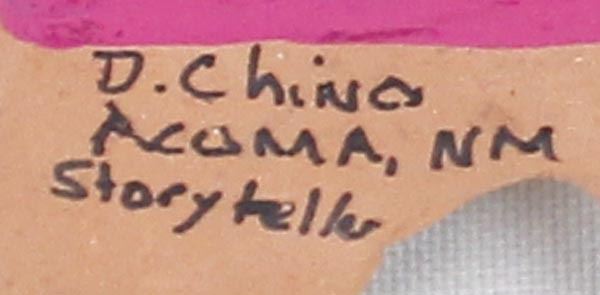 D. Chino
ACOMA, NM
Storyteller